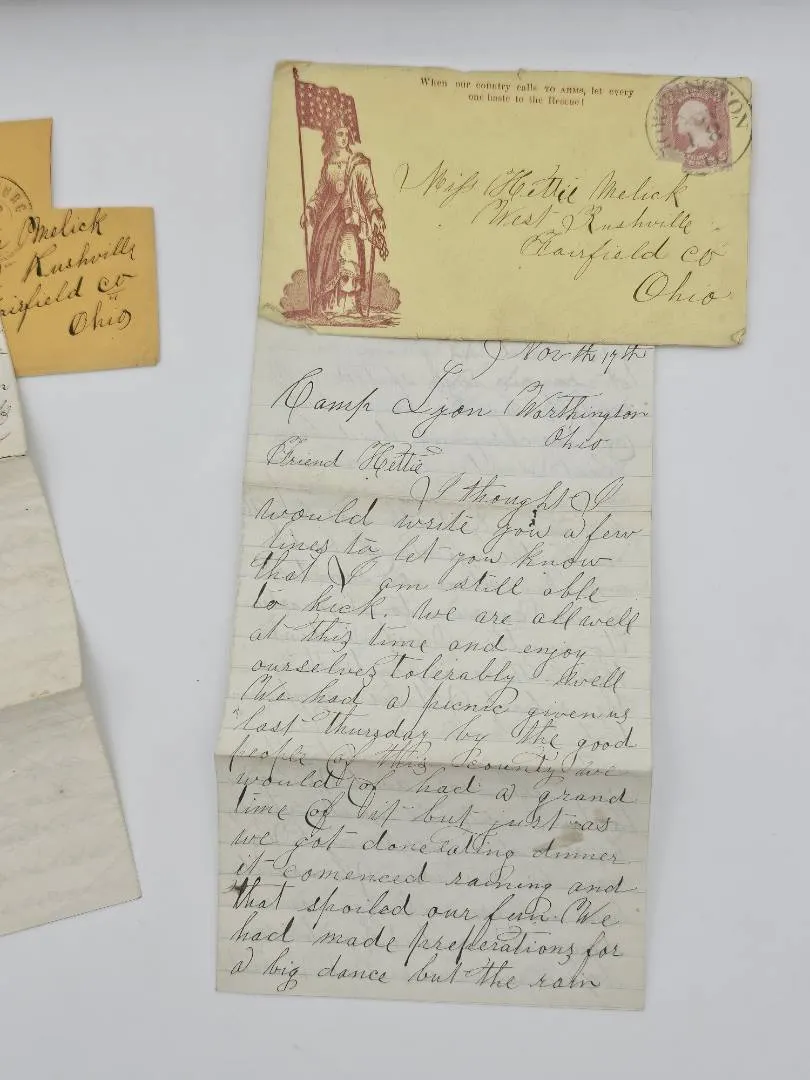 When our country calls TO ARMS, let every
one haste to the Rescue!
Miss Hettie Melick
West Rushville
Fairfield co
Ohio
Melick
Rushville
airfield co
Ohio
Nov th 17th
Camp Lyon Worthington
Ohio
Friend Hettie
I thought I
would write you a few
lines to let you know
that I am still able
to kick. We are all well
at this time and enjoy
ourselves tolerably well
We had a picnic given us
last thursday by the good
people of this county we
would of had a grand
time of it but just as
we got done eating dinner
it comenced raining and
that spoiled our fun. We
had made preperations for
a big dance but the rain